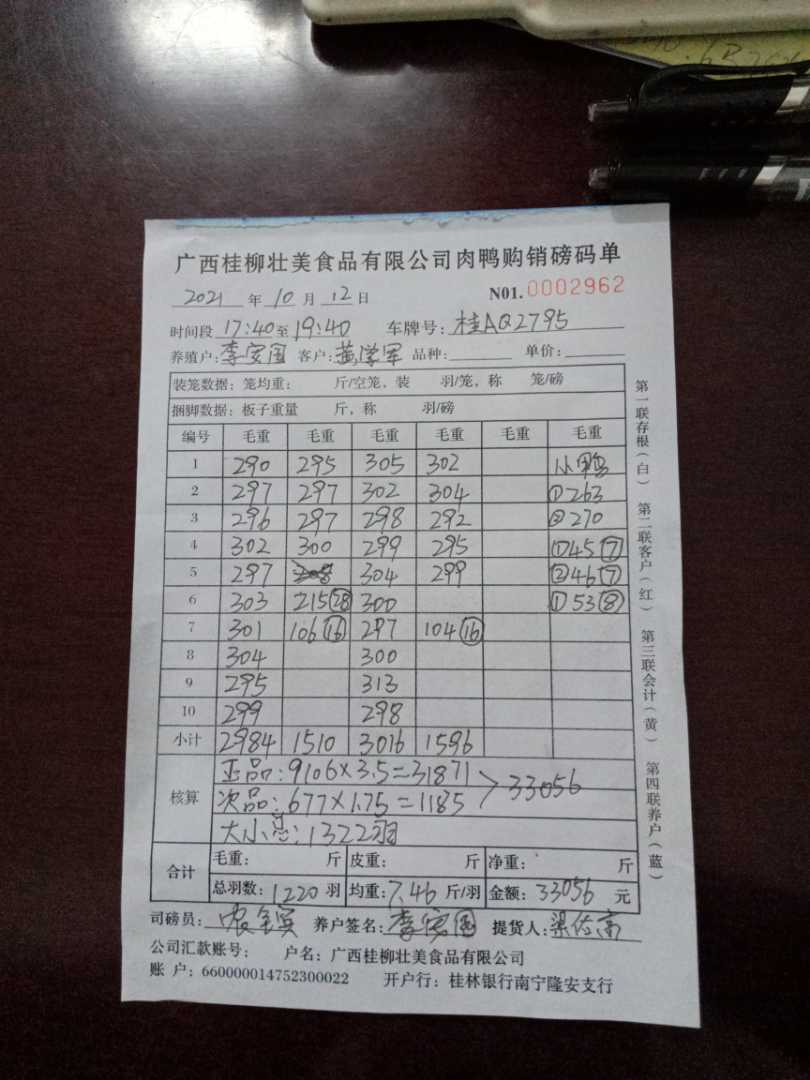 广西桂柳壮美食品有限公司肉鸭购销磅码单
2021 年 10 月 12 日 N01.0002962
时间段 17:40 至 19:40 车牌号: 桂AQ2795
养殖户: 李安国 客户: 黄学军 品种: 单价:
装笼数据: 笼均重: 斤/空笼, 装 羽/笼, 称 笼/磅
捆脚数据: 板子重量 斤, 称 羽/磅
编号 毛重 毛重 毛重 毛重 毛重 毛重
1 290 295 305 302 小鸭
2 297 297 302 304 ①263
3 296 297 298 292 ②270
4 302 300 299 295 ①45⑦
5 297 304 299 ②46⑦
6 303 215㉘ 300 ①53⑧
7 301 106⑯ 297 104⑯
8 304 300
9 295 313
10 299 298
小计 2984 1510 3016 1596
核算
正品: 9106×3.5=31871
次品: 677×1.75=1185 > 33056
大小总: 1322羽
合计
毛重: 斤 皮重: 斤 净重: 斤
总羽数: 1220 羽 均重: 7.46 斤/羽 金额: 33056 元
司磅员: 养户签名: 李安国 提货人:
公司汇款账号: 户名: 广西桂柳壮美食品有限公司
账 户: 660000014752300022 开户行: 桂林银行南宁隆安支行
第一联存根(白) 第二联客户(红) 第三联会计(黄) 第四联养户(蓝)